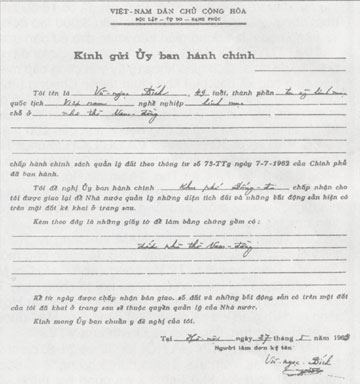 VIỆT-NAM DÂN CHỦ CỘNG HÒA
ĐỘC LẬP — TỰ DO — HẠNH PHÚC
Kính gửi Ủy ban hành chính
Tôi tên là Vũ-ngọc Bích, 49 tuổi, thành phần tu sỹ linh mục
quốc tịch Việt nam nghề nghiệp linh mục
chỗ ở nhà thờ Nam-Đồng
chấp hành chính sách quản lý đất theo thông tư số 73-TTg ngày 7-7-1962 của Chính phủ
đã ban hành.
Tôi đề nghị Ủy ban hành chính khu phố Đống-đa chấp nhận cho
tôi được giao lại để Nhà nước quản lý những diện tích đất và những bất động sản hiện có
trên mặt đất kê khai ở trang sau.
Kèm theo đây là những giấy tờ để làm bằng chứng gồm có:
nhà thờ Nam-Đồng
Kể từ ngày được chấp nhận bàn giao, số đất và những bất động sản có trên mặt đất
của tôi đã khai ở trang sau sẽ thuộc quyền quản lý của Nhà nước.
Kính mong Ủy ban chuẩn y đề nghị của tôi.
Tại Hà-nội ngày 27 tháng 5 năm 196
Người làm đơn ký tên
Vũ-ngọc Bích